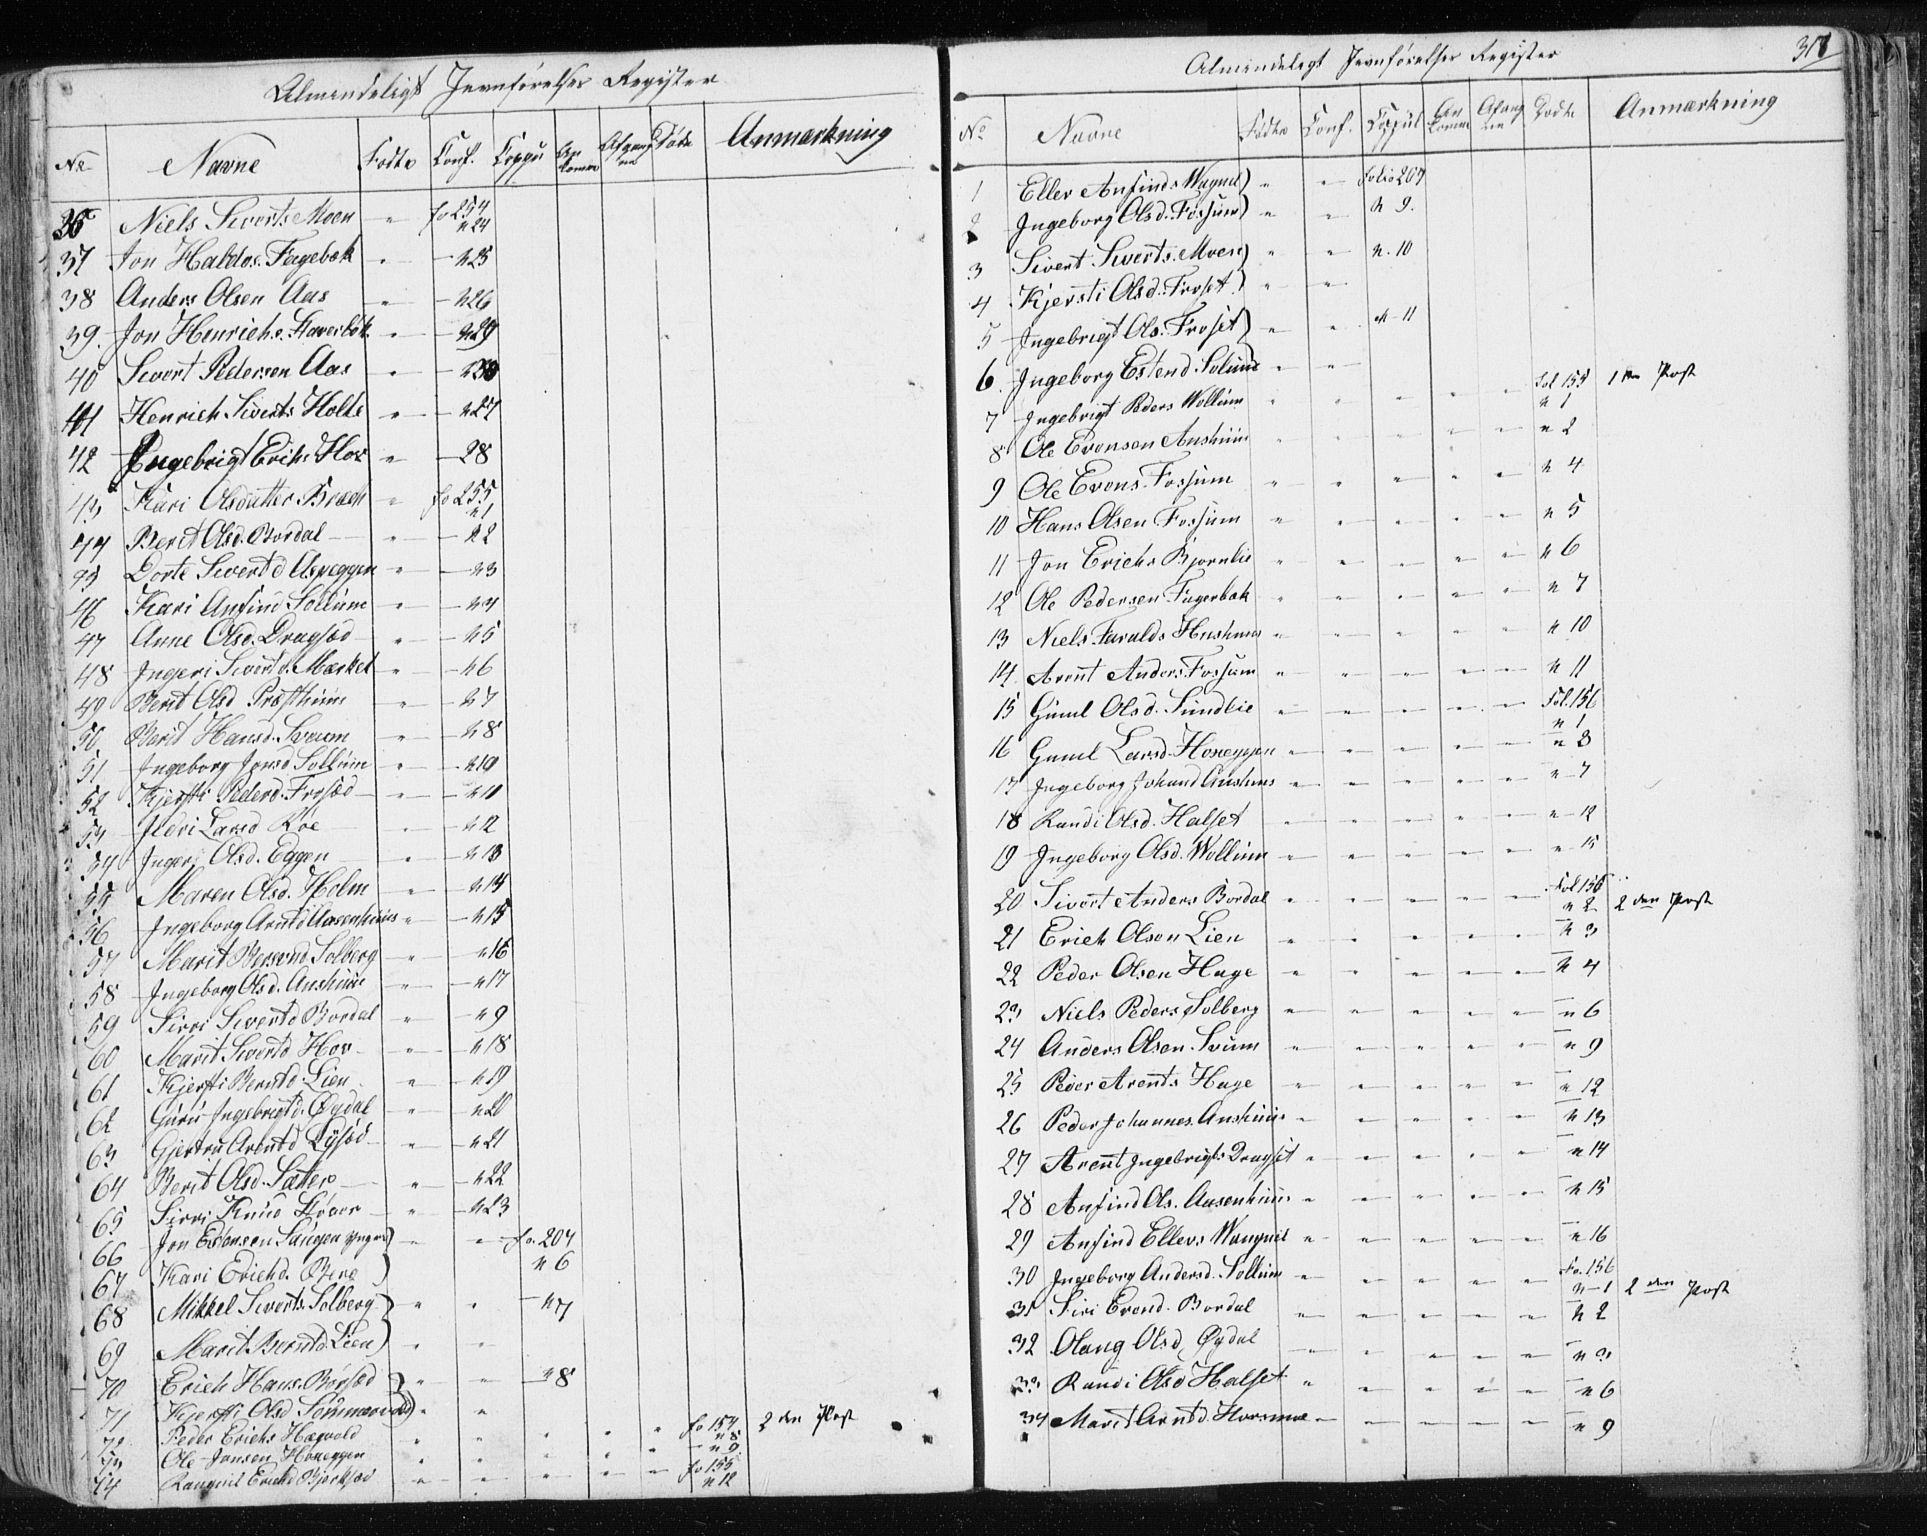 Almindeligt Jevnførelses Register
No Navne Fødte Conf. Copyu An komne Afgang ne Døde Anmærkning
36 Niels Siverts. Moen " fo 254 n 24
37 Jon Haldos. Fagebæk " — n 25
38 Anders Olsen Aas " — n 26
39. Jon Henrichs. " — n 29
40 Sivert Pedersen Aas " — n 30
41 Henrich Siverts Holte " — n 27
42 Ingebrigt Erichs Hov " — 28
43 Kari Olsdatter Bræch " fo 255 n 1
44 Berit Olsd. Bordal " — n 2
45 Dorte Sivertd Aspeggen " — n 3
46 Kari Anfind Sollium " — n 4
47 Anne Olsd. Dragsød " — n 5
48 Ingeri Sivertd. Mærket " — n 6
49 Berit Olsd Præsthuus " — n 7
50 Berit Hansd. Svum " — n 8
51 Ingeborg Jonsd Sollium " — n 10
52 Kjersti Pederd. Frosød " — n 11
53 Ildri Larsd Roe " — n 12
54 Ingeri Olsd. Eggen " — n 13
55 Maren Olsd. Holm " — n 14
56 Ingeborg Arntd Aasenhuus " — n 15
57 Marit Bersvnd Solberg " — n 16
58 Ingeborg Olsd. Anshuus " — n 17
59 Sirri Sivertd Bordal " — n 9
60 Marit Sivertd Hov " — n 18
61 Kjersti Berntd. Lien " — n 19
62 Guru Ingebrigtd. Øydal " — n 20
63 Gjertru Arentd Lysød " — n 21
64 Berit Olsd. Sætter " — n 22
65 Sirri Knud " — n 23
66 Jon Estensen Langen yngre) " " fo. 207 n 6
67 Kari Erichd. Berg )
68 Mikkel Siverts. Solberg } " " — n 7
69 Marit Berntd. Lien) " "
70 Erich Hans. Børsød } " " — n 8
71 Kjersti Olsd " "
72 Peder Erichs Hægvold " " " " " fo 154 n 8 2 den Post
73 Ole Jonsen Honeggen " " " " " n 9
74 Rangnil Erichd Bjerksød " " " " " fo 155 n 12
Almindelegt Jevnførelses Register 317
No Navne Fødte Conf. Copul An komne Afgang ne Dødte Anmærkning
1 Eller Anfinds Wagnel) " " Folio 207
2 Ingeborg Olsd. Fossum) " " n 9.
3 Sivert Siverts. Moen) " " n. 10
4 Kjersti Olsd. Froset) " "
5 Ingebrigt Ols. Froset) " " n 11
6. Ingeborg Estend Solium " "
7 Ingebrigt Peders Wollium " " " " " Fol 155 n 1 1 ste Post
8 Ole Evensen Anshuus " " " " " n 2
9 Ole Evens. Fossum " " " " " n 4
10 Hans Olsen Fossum " " " " " n 5
11 Jon Erichs Bjørnlie " " " " " n 6
12 Ole Pedersen Fagerbæk " " " " " n 7
13 Niels Faralds Hushmo " " " " " n 10
14. Arent Anders. Fossum " " " " " n 11
15 Gunil Olsd. Sundlie " " " " " Fol. 156 n 1
16 Gunil Larsd. Honeggen " " " " " n 3
17 Ingeborg Johand Anshuus " " " " " n 7
18 Randi Olsd. Halset " " " " " n 12
19 Ingeborg Olsd. Wollium " " " " " n 15
20 Sivert Anders Bordal " " " " " Fol 156 n 2 2 den Post
21 Erich Olsen Lien " " " " " n 3
22 Peder Olsen Hage " " " " " n 4
23 Niels Peders Solberg " " " " " n 6
24 Anders Olsen. Svum " " " " " n 9
25 Peder Arents Hage " " " " " n 12
26 Peder Johannes. Anshuus " " " " " n 13
27 Arent Ingebrigts Dragset " " " " " n 14
28 Anfind Ols. Aasenhuus " " " " " n 15
29 Anfind Ellers Wangnil " " " " " n 16
30 Ingeborg Andersd. Sollium " " " " " Fo. 156 n 1 2 den Post
31 Siri Evend. Bordal " " " " " n 2
32 Olaug Olsd Øydal " " " " " n 3
33 Randi Olsd Halset " " " " " n 6
34 Marit Arntd. Horsmoe " " " " " n 9